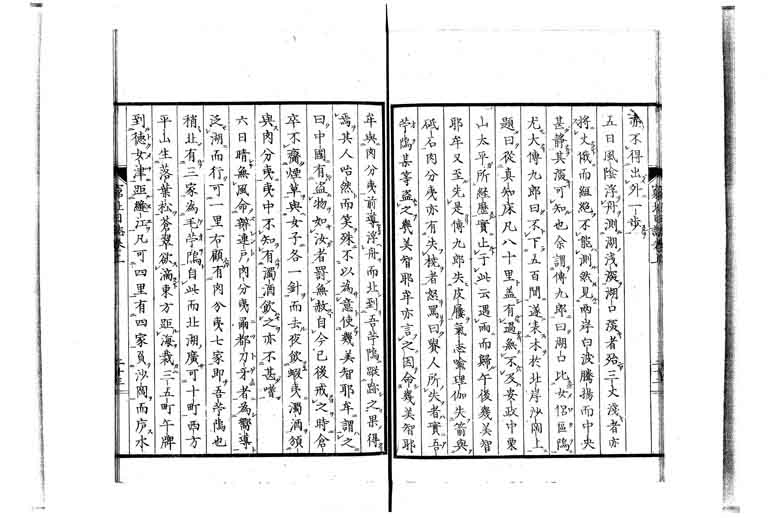 亦不得出外一步
五日風陰浮舟測湖淺深湖口深者殆三丈淺者亦
將丈俄而繩絕不能測然見兩岸白波騰揚而中央
甚靜其深可知也余謂傳九郎曰湖口比女侶區隖
尤大傳九郎曰不下五百間遂表木於北岸沙陶上
題曰從真知床凡八十里蓋有過無不及安政中栗
山太平所經歷實止于此云遇雨而歸午後幾美智
耶牟又至先是傳九郎失皮履氣志喻理伽失箭與
砥石肉分夷亦有失橈者怒罵曰賚人所失者實吾
苧隖某等盜之幾美智耶牟亦言之因命幾美智耶
牟與肉分夷前導浮舟而北到吾苧隖蹤跡之果得
焉其人哈然而笑殊不以為意使幾美智耶牟謂之
曰中國有盜物如汝者罰無赦自今已後戒之時倉
卒不齎煙草與女子各一針而去夜飲蝦夷濁酒頒
與肉分夷夷中不知有濁酒飲之亦不甚嗜
六日晴無風命辨連戶肉分夷爵都力牙者為嚮導
泛湖而行可一里右顧有肉分夷七家即吾苧隖也
稍北有三家為毛苧隖自此而北湖廣可十町西方
平山生落葉松蒼翠欲滴東方距海裁三五町午牌
到德女津距纏江凡可四里有四家負沙陶而戶水